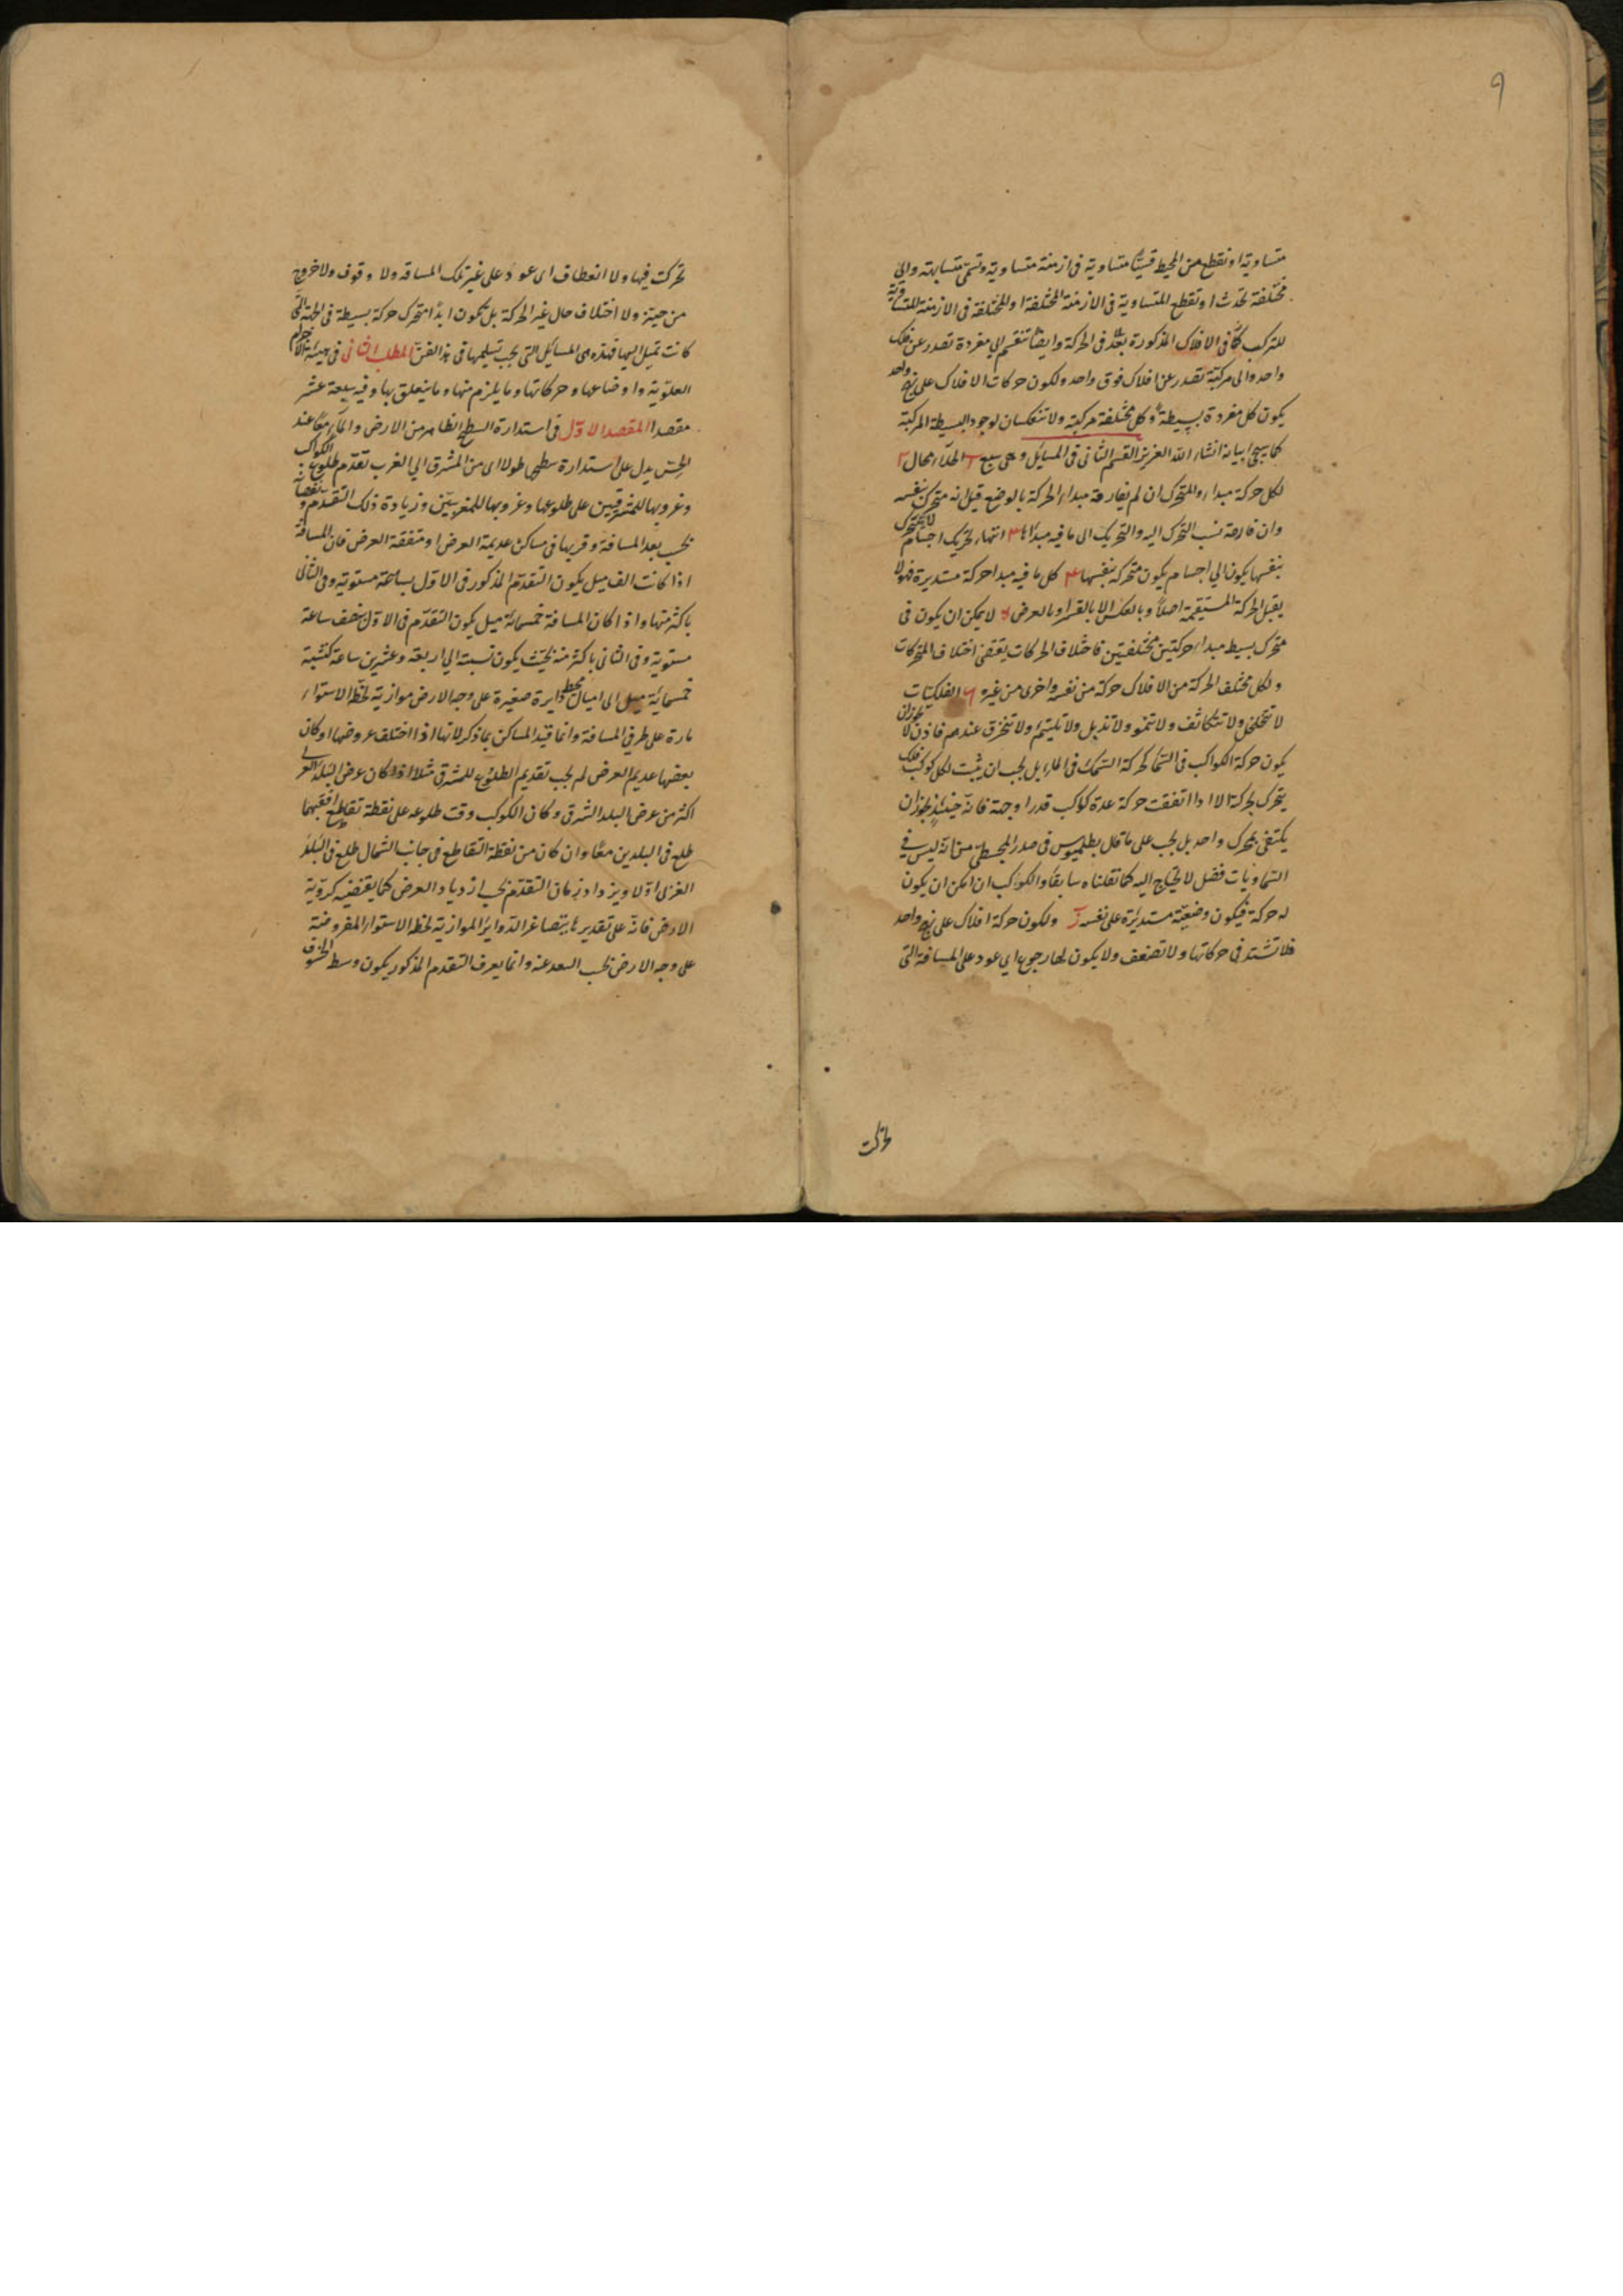 ٩
متساوية او نقطع من المحيط قسيًّا متساوية فى ازمنة متساوية وتسمى متشابهة والى
مختلفة تحدث او تقطع المتساوية فى الازمنة المختلفة او المختلفة فى الازمنة المتساوية
للتركب كما فى الافلاك المذكورة بعد فى الحركة وايضًا تنقسم الى مفردة تصدر عن فلك
واحد والى مركبة تصدر عن افلاك فوق واحد ولكون حركات الافلاك على نهج واحد
يكون كل مفردة بسيطة وكل مختلفة مركبة ولا تنعكسان لوجود البسيطة المركبة
كما يجئ بيانه انشاء الله العزيز القسم الثانى فى المسائل وهى سبع الخلاء محال ٢
لكل حركة مبداء والمتحرك ان لم يفارقه مبداء الحركة بالوضع قيل انه متحرك بنفسه
وان فارقه نسب التحرك اليه والتحريك الى ما فيه مبدأها ٣ انتهاء تحريك اجسام لا يتحرك
بنفسها يكون الى اجسام يكون متحركة بنفسها ٤ كل ما فيه مبدا حركة مستديرة فهو لا
يقبل الحركة المستقيمة اصلًا وبالعكس الا بالقسر او بالعرض ٥ لا يمكن ان يكون فى
متحرك بسيط مبداء حركتين مختلفتين فاختلاف الحركات يقتضى اختلاف المتحركات
ولكل مختلف الحركة من الافلاك حركة من نفسه واخرى من غيره ٦ الفلكيات
لا تتخلخل ولا تتكاثف ولا تنمو ولا تذبل ولا تلتئم ولا تنخرق عندهم فاذن لا يجوز ان
يكون حركة الكواكب فى السماء كحركة السمك فى الماء بل يجب ان يثبت لكل كوكب فلك
يتحرك بحركته الا اذا اتفقت حركة عدة كواكب قدرا وجهة فانه حينئذٍ يجوز ان
يكتفى بمحرك واحد بل يجب على ما قال بطلميوس فى صدر المجسطى من انه ليس فى
السماويات فضل لا يحتاج اليه كما نقلناه سابقًا والكوكب ان امكن ان يكون
له حركة فيكون وضعيّة مستديرة على نفسه ز ولكون حركة افلاك على نهج واحد
فلا تشتد فى حركاتها ولا تضعف ولا يكون لها رجوع اى عود على المسافة التى
تحركت
تحركت فيها ولا انعطاف اى عود على غير تلك المسافة ولا وقوف ولا خروج
من حيّز ولا اختلاف حال غير الحركة بل يكون ابدًا متحرك حركة بسيطة فى الجهة التى
كانت تميل اليها فهذه هى المسائل التى يجب تسليمها فى هذا الفن المطلب الثانى فى هيئة الاجرام
العلويّة واوضاعها وحركاتها وما يلزم منها وما يتعلق بها وفيه سبعة عشر
مقصدا المقصد الاوّل فى استدارة السطح الظاهر من الارض والماء معًا عند
الحس يدل على استدارة سطحى طولا اى من المشرق الى المغرب تقدم طلوع الكواكب
وغروبها للمشرقيين على طلوعها وغروبها للمغربيّين وزيادة ذلك التقدم ونقصانه
بحسب بعد المسافة وقربها فى مساكن عديمة العرض او متفقة العرض فان المسافة
اذا كانت الف ميل يكون التقدّم المذكور فى الاول بساعة مستوية وفى الثانى
باكثر منها واذا كان المسافة خمسمائة ميل يكون التقدّم فى الاول نصف ساعة
مستوية وفى الثانى باكثر منه بحيث يكون نسبته الى اربعة وعشرين ساعة كنسبة
خمسمائة ميل الى اميال محيط دايرة صغيرة على وجه الارض موازية لخط الاستواء
مارة على طرفى المسافة وانما قيد المساكن بما ذكر لانها اذا اختلف عروضها او كان
بعضها عديم العرض لم يجب تقديم الطلوع للمشرق مثلا اذا كان عرض البلد الغربى
اكثر من عرض البلد الشرقى وكان الكوكب وقت طلوعه على نقطة تقاطع افقيهما
طلع فى البلدين معًا وان كان من نقطة التقاطع فى جانب الشمال طلع فى البلد
الغربى اوّلا ويزداد زمان التقدّم بحسب ازدياد العرض كما يقتضيه كرويّة
الارض فانّه على تقديرها يتصاغر الدّواير الموازية لخط الاستواء المفروضة
على وجه الارض بحسب البعد عنه وانما يعرف التقدم المذكور بكون وسط الخسوف